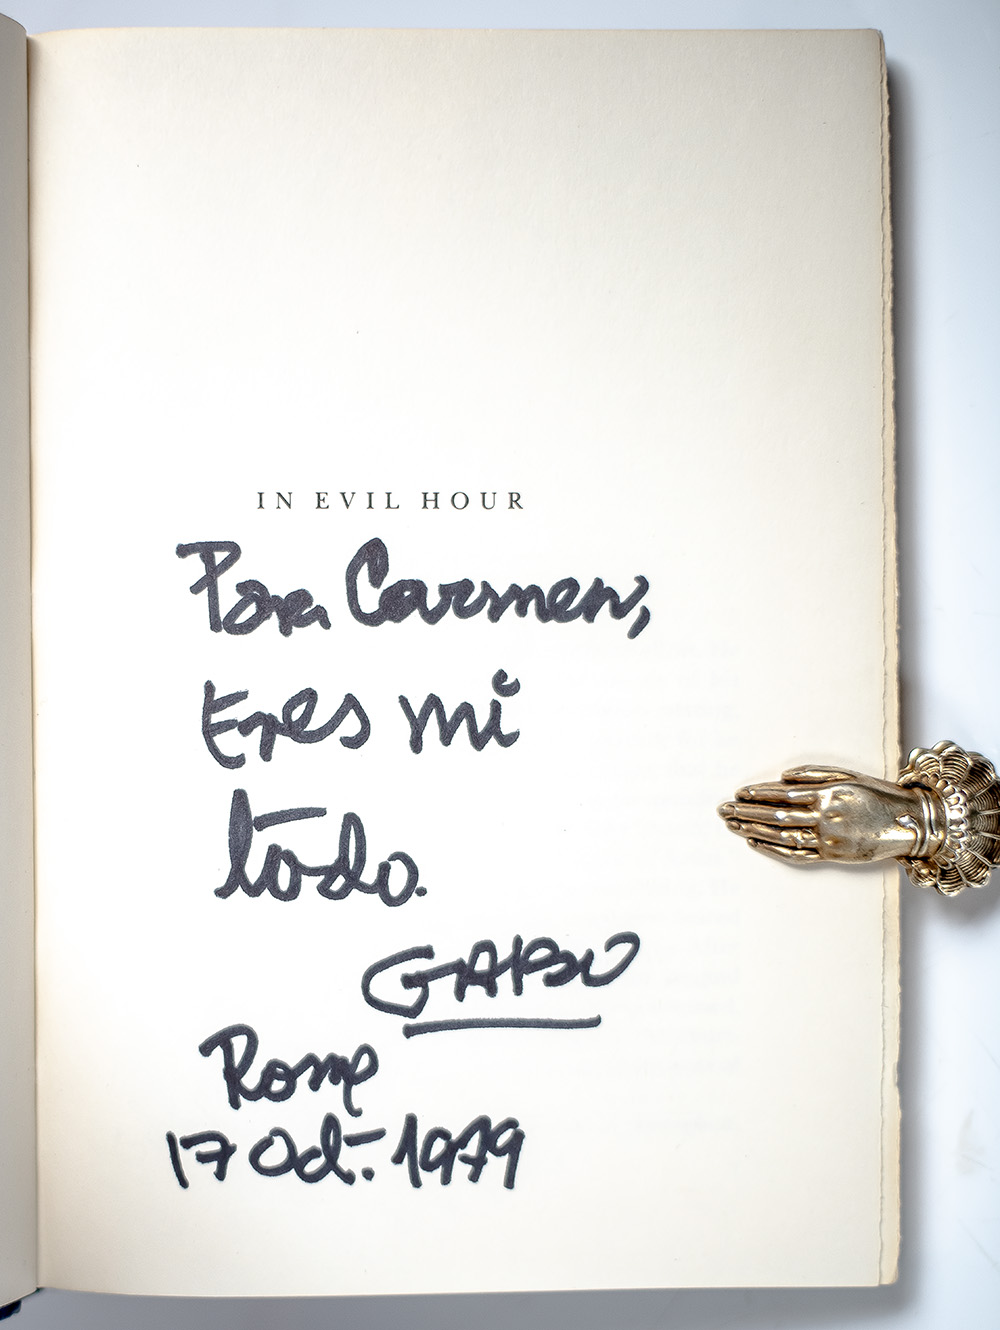 IN EVIL HOUR
Para Carmen,
Eres mi
todo.
GABO
Rome
17 Oct. 1979